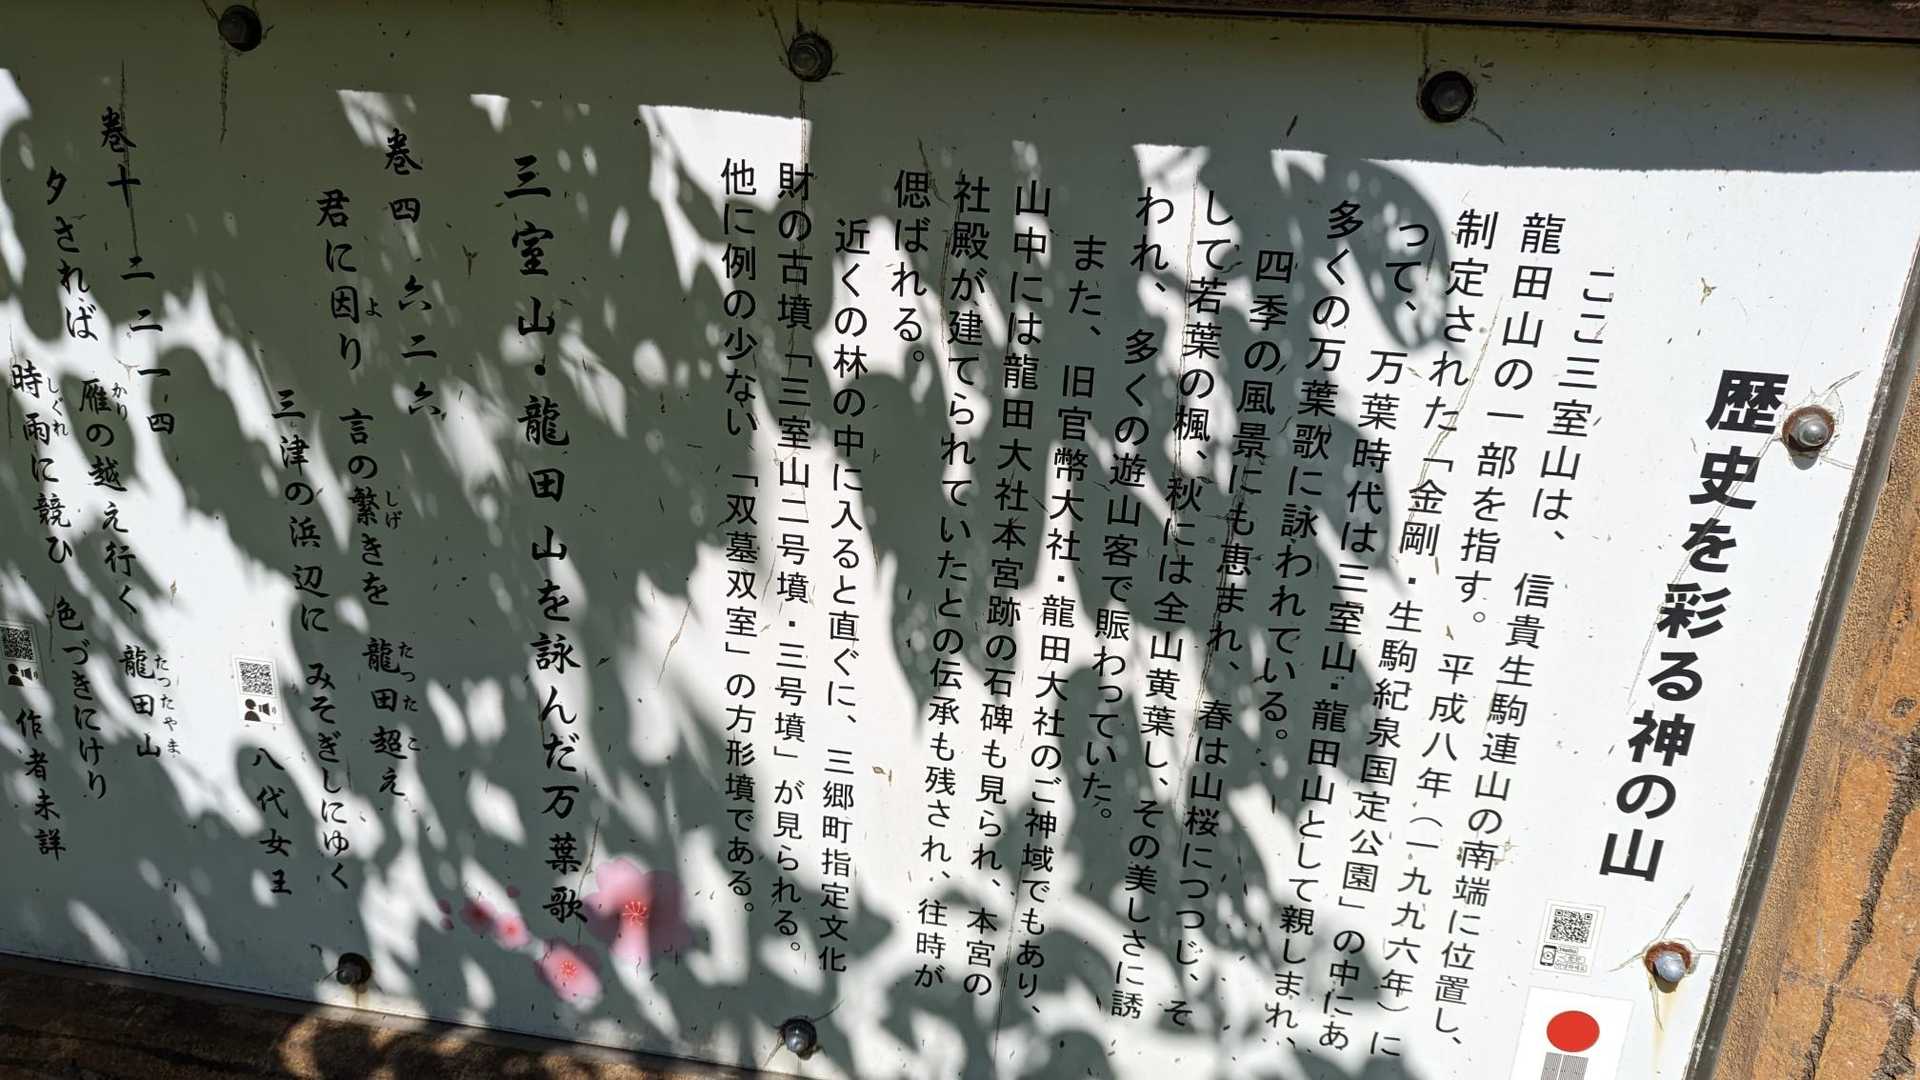 歴史を彩る神の山
ここ三室山は、信貴生駒連山の南端に位置し、
龍田山の一部を指す。平成八年（一九九六年）に
制定された「金剛・生駒紀泉国定公園」の中にあ
って、万葉時代は三室山・龍田山として親しまれ、
多くの万葉歌に詠われている。
四季の風景にも恵まれ、春は山桜につつじ、そ
して若葉の楓、秋には全山黄葉し、その美しさに誘
われ、多くの遊山客で賑わっていた。
また、旧官幣大社・龍田大社のご神域でもあり、
山中には龍田大社本宮跡の石碑も見られ、本宮の
社殿が建てられていたとの伝承も残され、往時が
偲ばれる。
近くの林の中に入ると直ぐに、三郷町指定文化
財の古墳「三室山二号墳・三号墳」が見られる。
他に例の少ない「双墓双室」の方形墳である。
三室山・龍田山を詠んだ万葉歌
巻四 六二六
よ しげ たつた こ
君に因り 言の繁きを 龍田超え
三津の浜辺に みそぎしにゆく
八代女王
巻十 二二一四
かり たつたやま
夕されば 雁の越え行く 龍田山
しぐれ
時雨に競ひ 色づきにけり
作者未詳